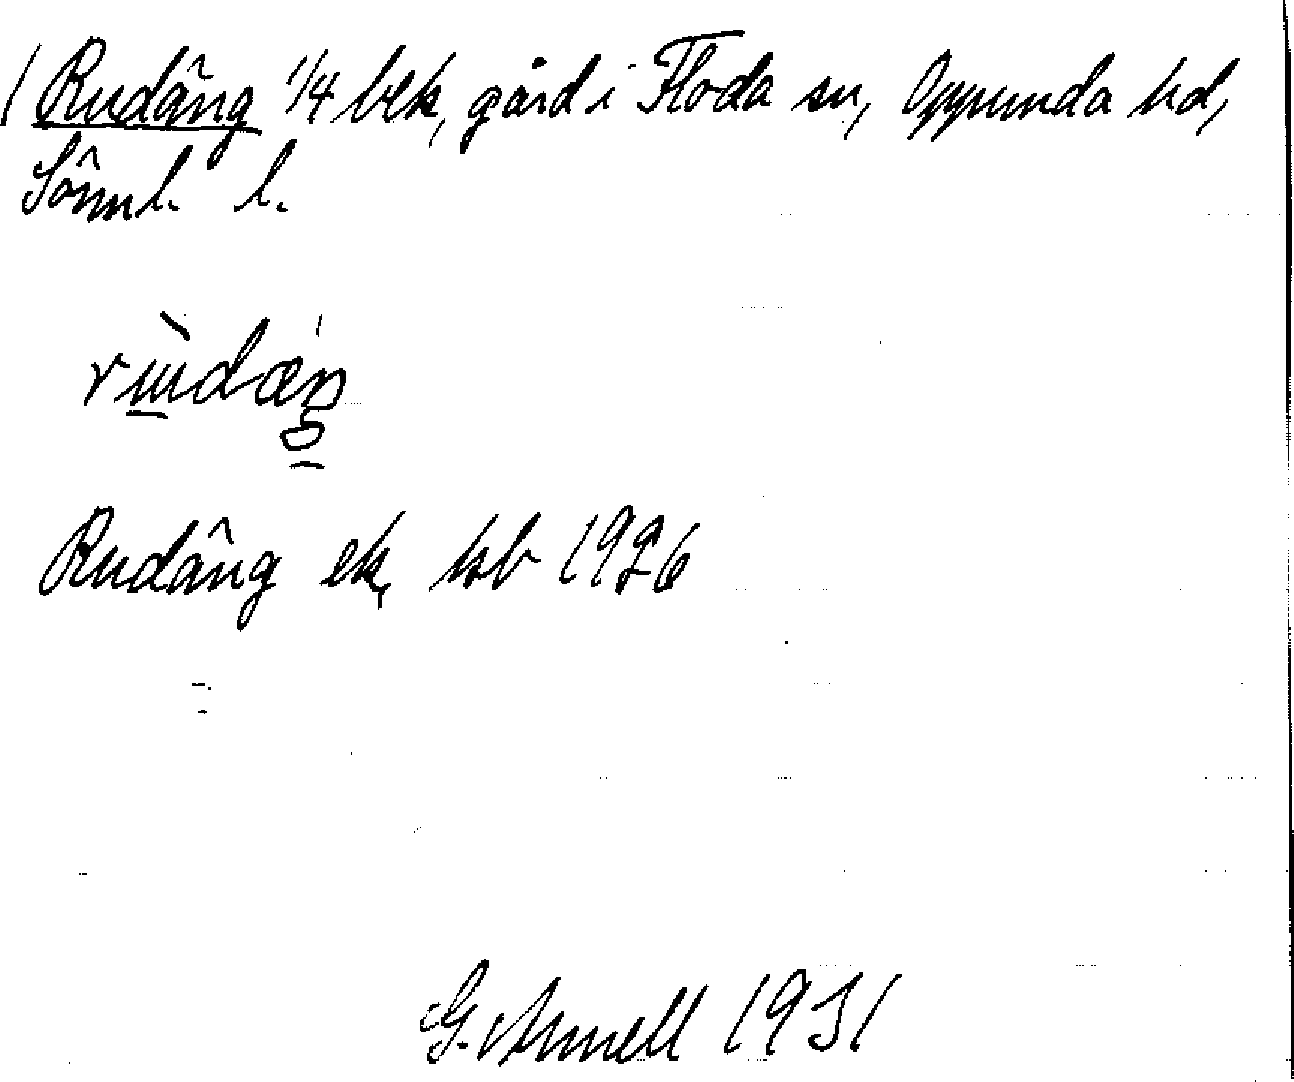 / Rudäng 1/4 bek, gård i Floda sn, Oppunda hd,
Sörml. l.
Rudäng ek, hb 1926
G. Arnell 1931